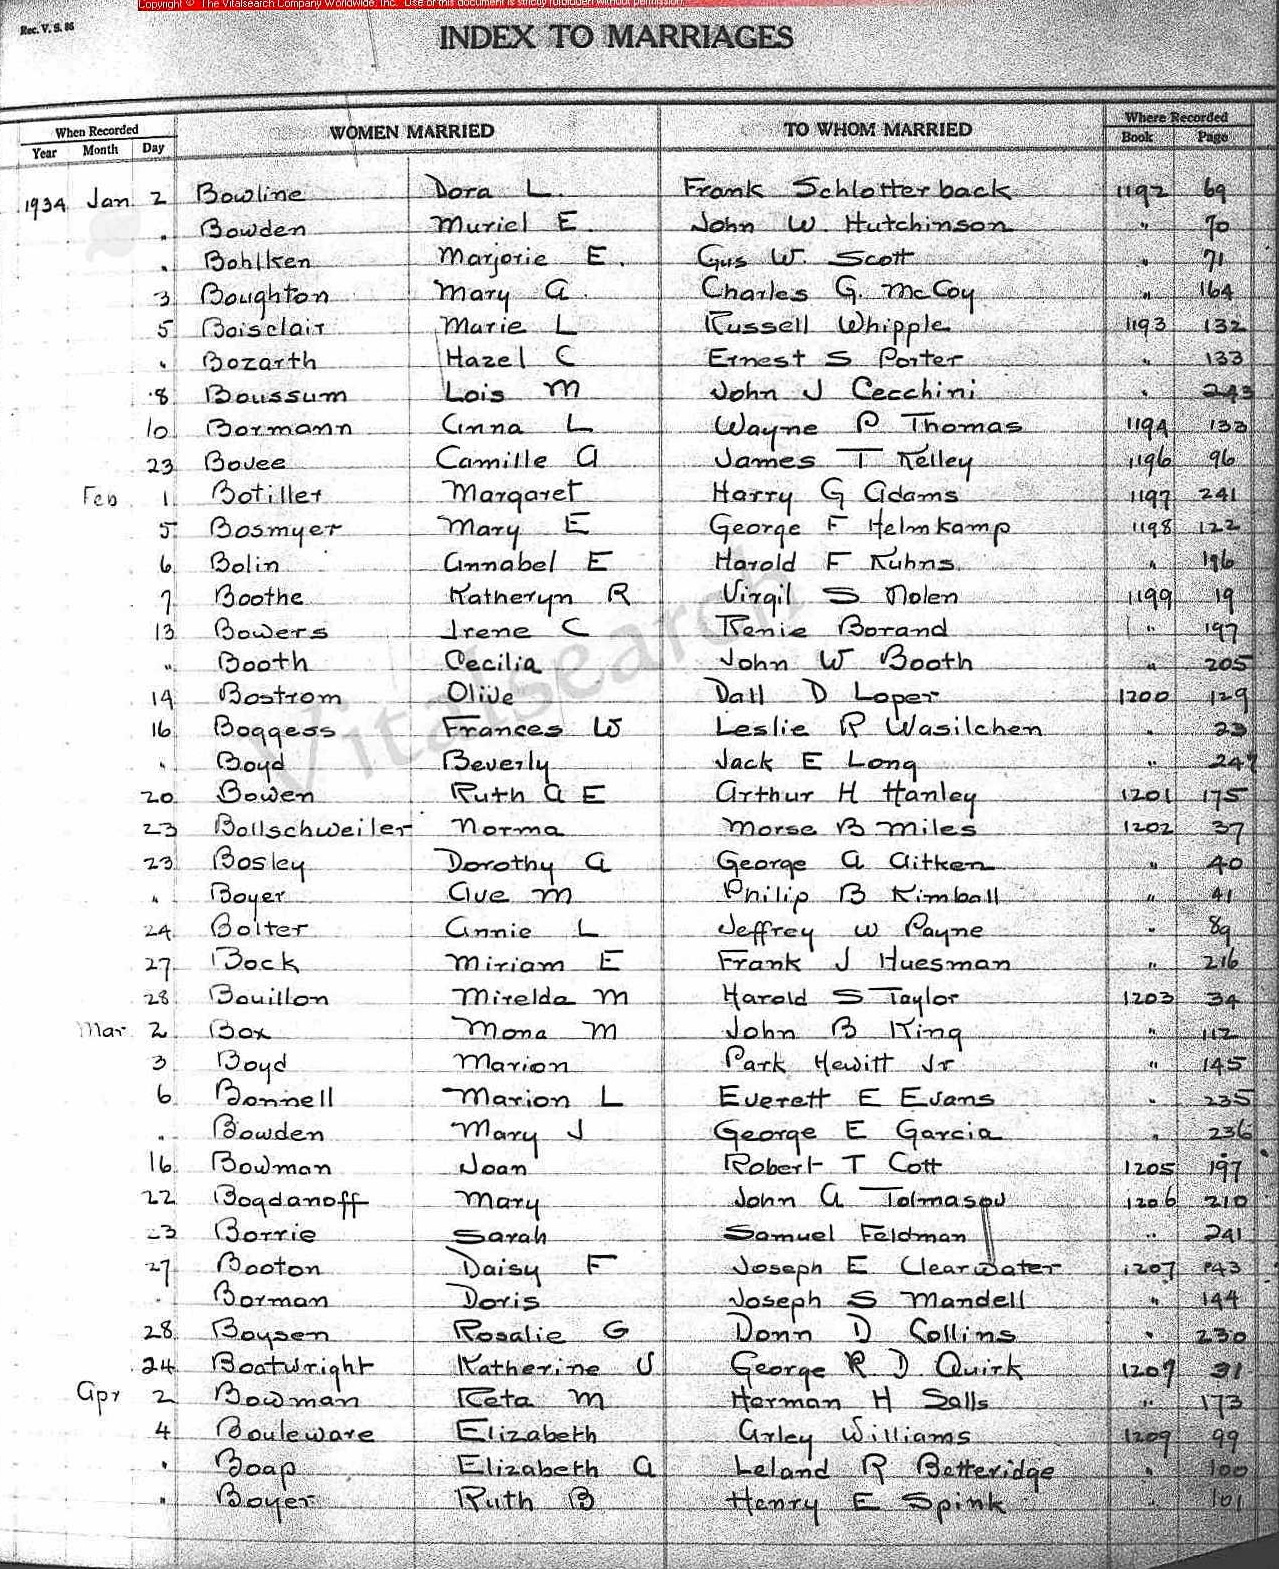 Copyright © The Vitalsearch Company Worldwide, Inc. Use of this document is strictly forbidden without permission.
Rec. V. S. 86
INDEX TO MARRIAGES
When Recorded WOMEN MARRIED TO WHOM MARRIED Where Recorded
Year Month Day Book Page
1934 Jan 2 Bowline Dora L. Frank Schlotterback 1192 69
" Bowden Muriel E. John W Hutchinson " 70
" Bohlken Marjorie E. Gus W. Scott " 71
3 Boughton Mary A. Charles G. McCoy " 164
5 Boisclair Marie L Russell Whipple 1193 132
" Bozarth Hazel C Ernest S Porter " 133
8 Boussum Lois M John J Cecchini " 243
10 Bormann Anna L Wayne P Thomas 1194 133
23 Bovee Camille A James T Kelley 1196 96
Feb 1 Botiller Margaret Harry G Adams 1197 241
5 Bosmyer Mary E George F Helmkamp 1198 122
6 Bolin Annabel E Harold F Kuhns " 196
7 Boothe Katheryn R Virgil S Nolen 1199 19
13 Bowers Irene C Renie Borand " 197
" Booth Cecilia John W Booth " 205
14 Bostrom Olive Dall D Loper 1200 129
16 Boggess Frances W Leslie R Wasilchen " 23
" Boyd Beverly Jack E Long " 247
20 Bowen Ruth A E Arthur H Hanley 1201 175
23 Bollschweiler Norma Morse B Miles 1202 37
23 Bosley Dorothy A George A Aitken " 40
" Boyer Ave M Philip B Kimball " 41
24 Bolter Annie L Jeffrey W Payne " 89
27 Bock Miriam E Frank J Huesman " 216
28 Bouillon Mirelda M Harold S Taylor 1203 34
Mar 2 Box Mona M John B King " 112
3 Boyd Marion Park Hewitt Jr " 145
6 Bonnell Marion L Everett E Evans " 235
" Bowden Mary J George E Garcia " 236
16 Bowman Joan Robert T Cott 1205 197
22 Bogdanoff Mary John A Tolmasov 1206 210
23 Borrie Sarah Samuel Feldman " 241
27 Booton Daisy F Joseph E Clearwater 1207 143
" Borman Doris Joseph S Mandell " 144
28 Boysen Rosalie G Donn D Collins " 230
24 Boatwright Katherine V George R D Quirk 1207 31
Apr 2 Bowman Reta M Herman H Salls " 173
4 Bouleware Elizabeth Arley Williams 1209 99
" Boap Elizabeth A Leland R Betteridge " 100
" Boyer Ruth B Henry E Spink " 101
Vitalsearch